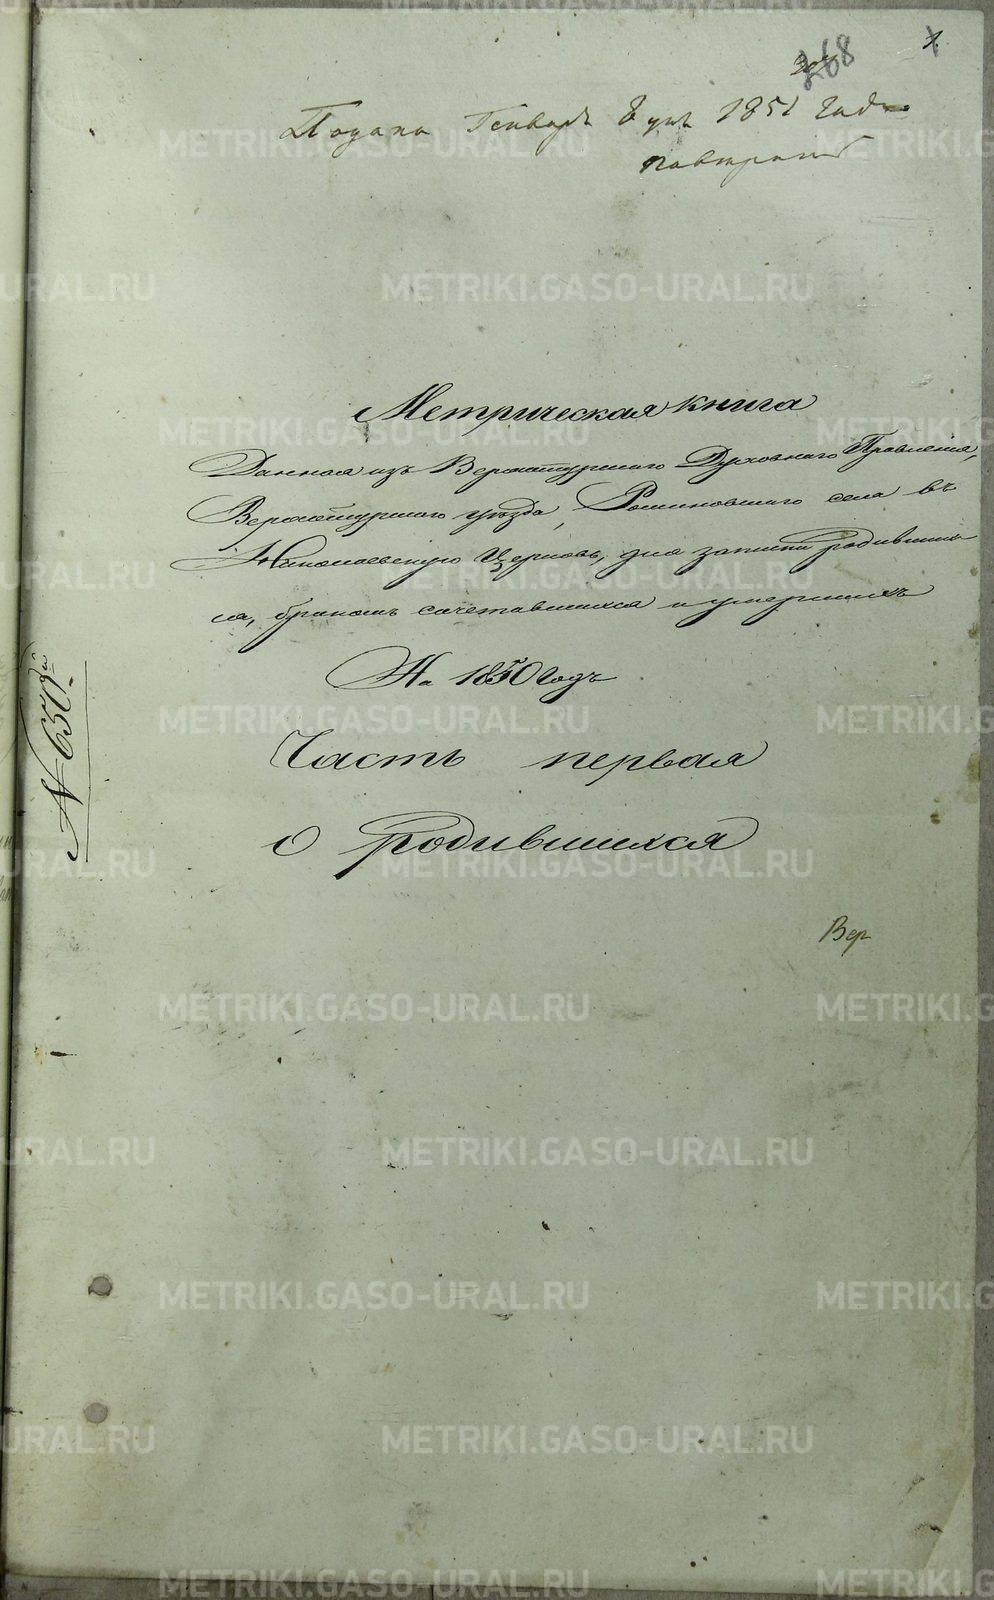 268
1
Подана Генваря 8 дня 1851 года
Метрическая книга
Данная изъ Верхотурскаго Духовнаго Правленія,
Верхотурскаго уѣзда, села въ
Николаевскую Церковь, для записки родивших
ся, бракомъ сочетавшихся и умершихъ
На 1850 годъ
Часть первая
о родившихся
№ 650й
Вер
METRIKI.GASO-URAL.RU